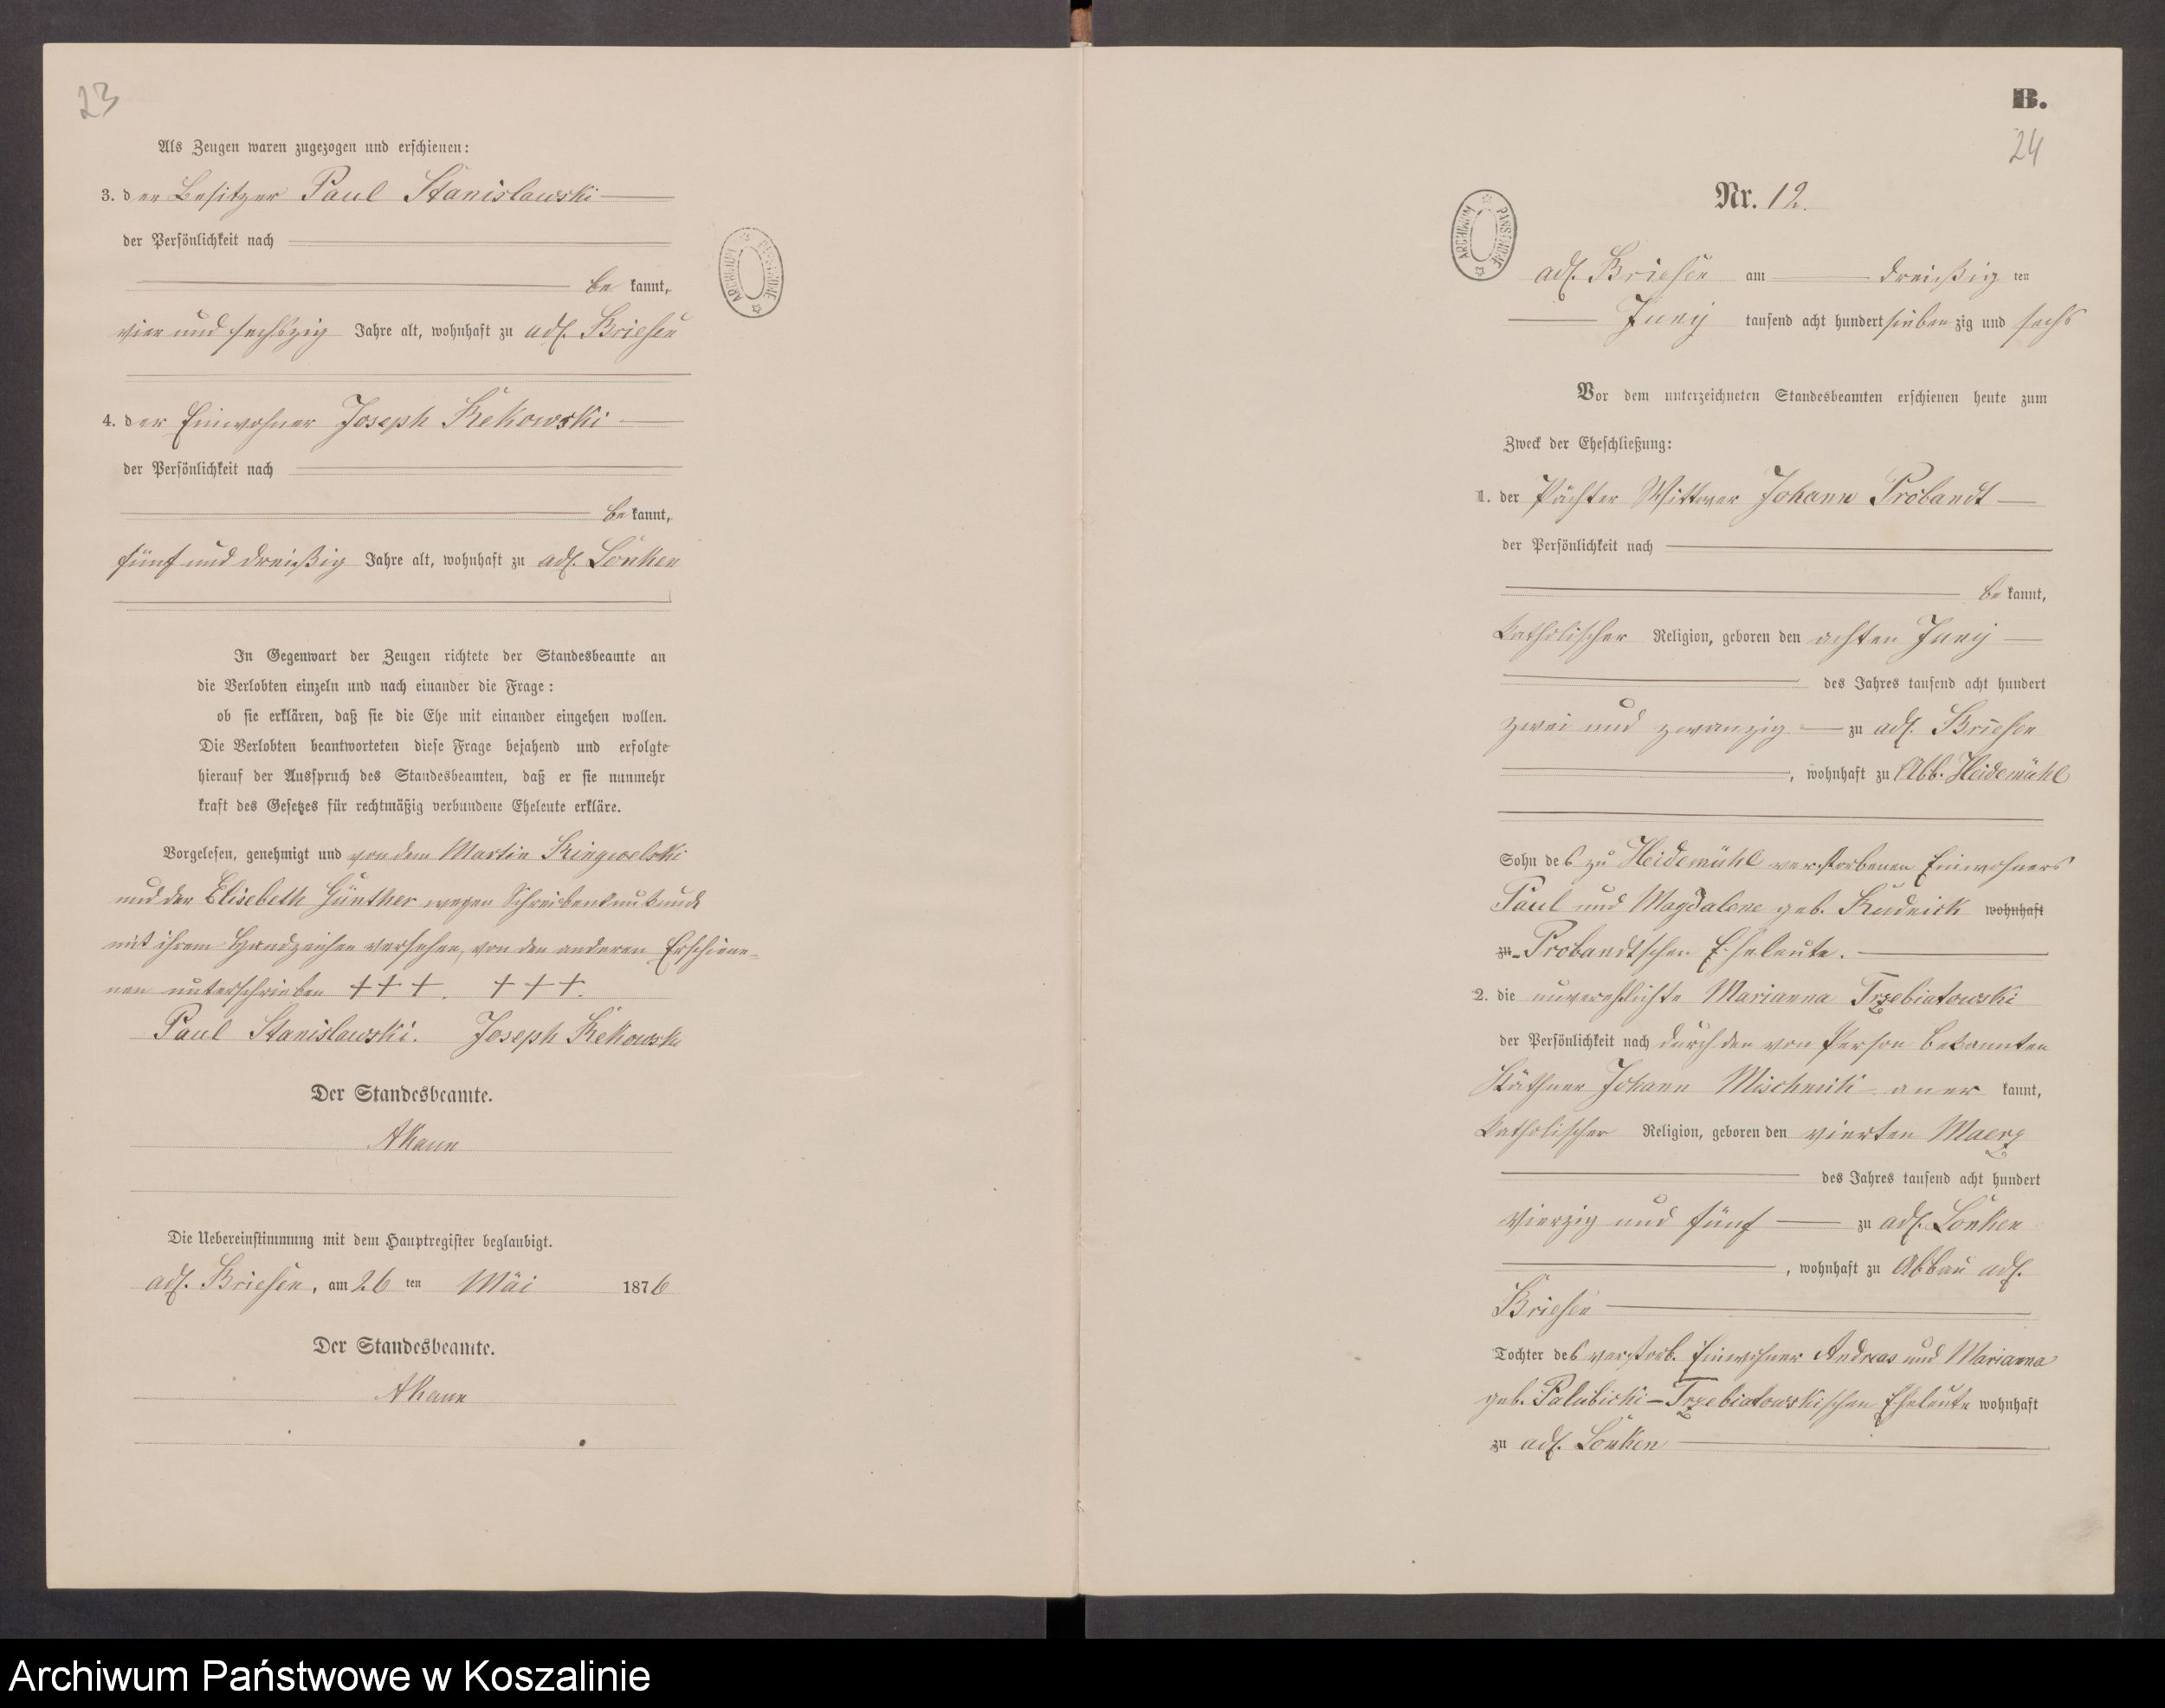 23
Als Zeugen waren zugezogen und erschienen:
3. der Besitzer Paul Stanislawski
der Persönlichkeit nach
bekannt,
vier und sechszig Jahre alt, wohnhaft zu adl. Briesen
4. der Einwohner Joseph Kekowski
der Persönlichkeit nach
bekannt,
fünf und dreißig Jahre alt, wohnhaft zu adl. Lonken
In Gegenwart der Zeugen richtete der Standesbeamte an
die Verlobten einzeln und nach einander die Frage:
ob sie erklären, daß sie die Ehe mit einander eingehen wollen.
Die Verlobten beantworteten diese Frage bejahend und erfolgte
hierauf der Ausspruch des Standesbeamten, daß er sie nunmehr
kraft des Gesetzes für rechtmäßig verbundene Eheleute erkläre.
Vorgelesen, genehmigt und von dem Martin Ringwelski
und der Elisebeth Günther wegen Schreibensunkunde
mit ihrem Handzeichen versehen, von den anderen Erschiene-
nen unterschrieben +++. +++.
Paul Stanislawski. Joseph Kekowski
Der Standesbeamte.
Die Uebereinstimmung mit dem Hauptregister beglaubigt.
adl. Briesen, am 26 ten Mai 1876
Der Standesbeamte.
B.
24
ARCHIWUM PAŃSTWOWE
Nr. 12.
adl. Briesen am dreißig ten
Juny tausend acht hundert siebenzig und sechs
Vor dem unterzeichneten Standesbeamten erschienen heute zum
Zweck der Eheschließung:
1. der Pächter Wittwer Johann Probandt
der Persönlichkeit nach
bekannt,
katholischer Religion, geboren den achten Juny
des Jahres tausend acht hundert
zwei und zwanzig zu adl. Briesen
, wohnhaft zu Abb. Heidemühl
Sohn des zu Heidemühl verstorbenen Einwohners
Paul und Magdalene geb. Rudnick wohnhaft
zu Probandtschen Eheleute.
2. die unverehlichte Marianna Trzebiatowski
der Persönlichkeit nach durch den von Person bekannten
Käthner Johann Mischnik anerkannt,
katholischer Religion, geboren den vierten Maerz
des Jahres tausend acht hundert
vierzig und fünf zu adl. Lonken
, wohnhaft zu Abbau adl.
Briesen
Tochter des verstorb. Einwohner Andreas und Marianna
geb. Palubicki-Trzebiatowskischen Eheleute wohnhaft
zu adl. Lonken
Archiwum Państwowe w Koszalinie